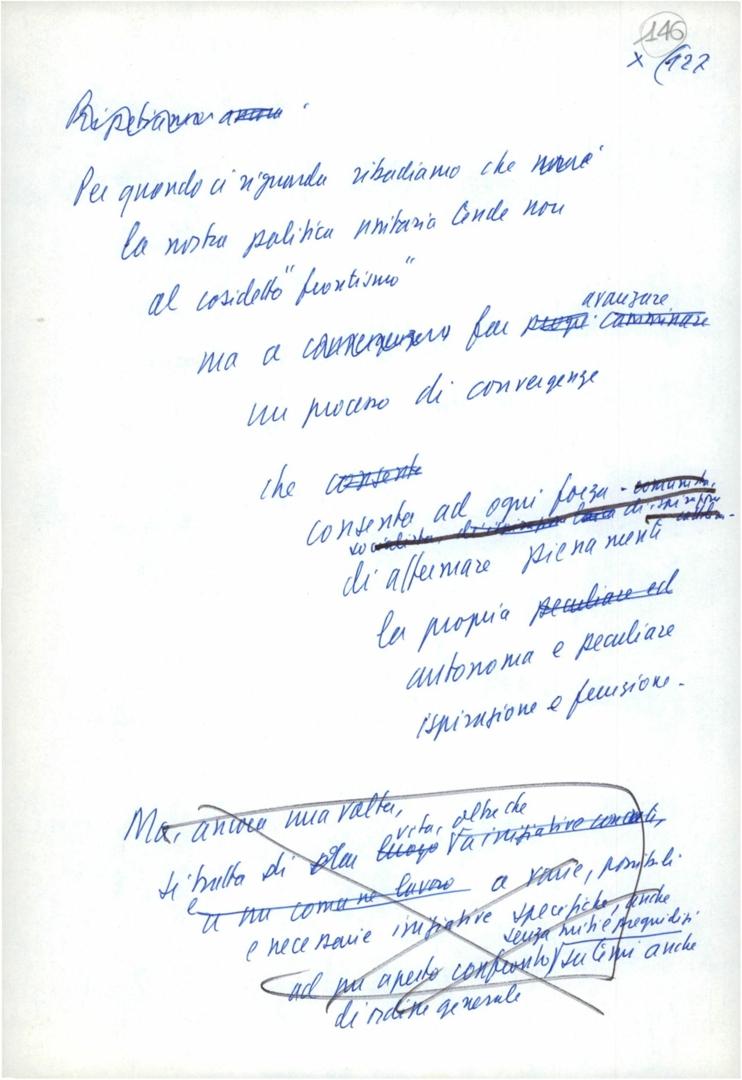 146
x (127
Ripetiamo
Per quando ci riguarda ribadiamo che
la nostra politica unitaria tende non
al cosidetto "frontismo"
avanzare
ma a far camminare
un processo di convergenze
che consenta
consenta ad ogni forza - comunista,
socialista, di ispirazione
di affermare pienamente
la propria peculiare ed
autonoma e peculiare
ispirazione e funzione.
Ma, ancora una volta,
vita, oltre che
si tratta di dar luogo a iniziative comuni,
e a un comune lavoro a varie, possibili
e necessarie iniziative specifiche, anche
senza miti e pregiudizi
ad un aperto confronto su temi anche
di ordine generale